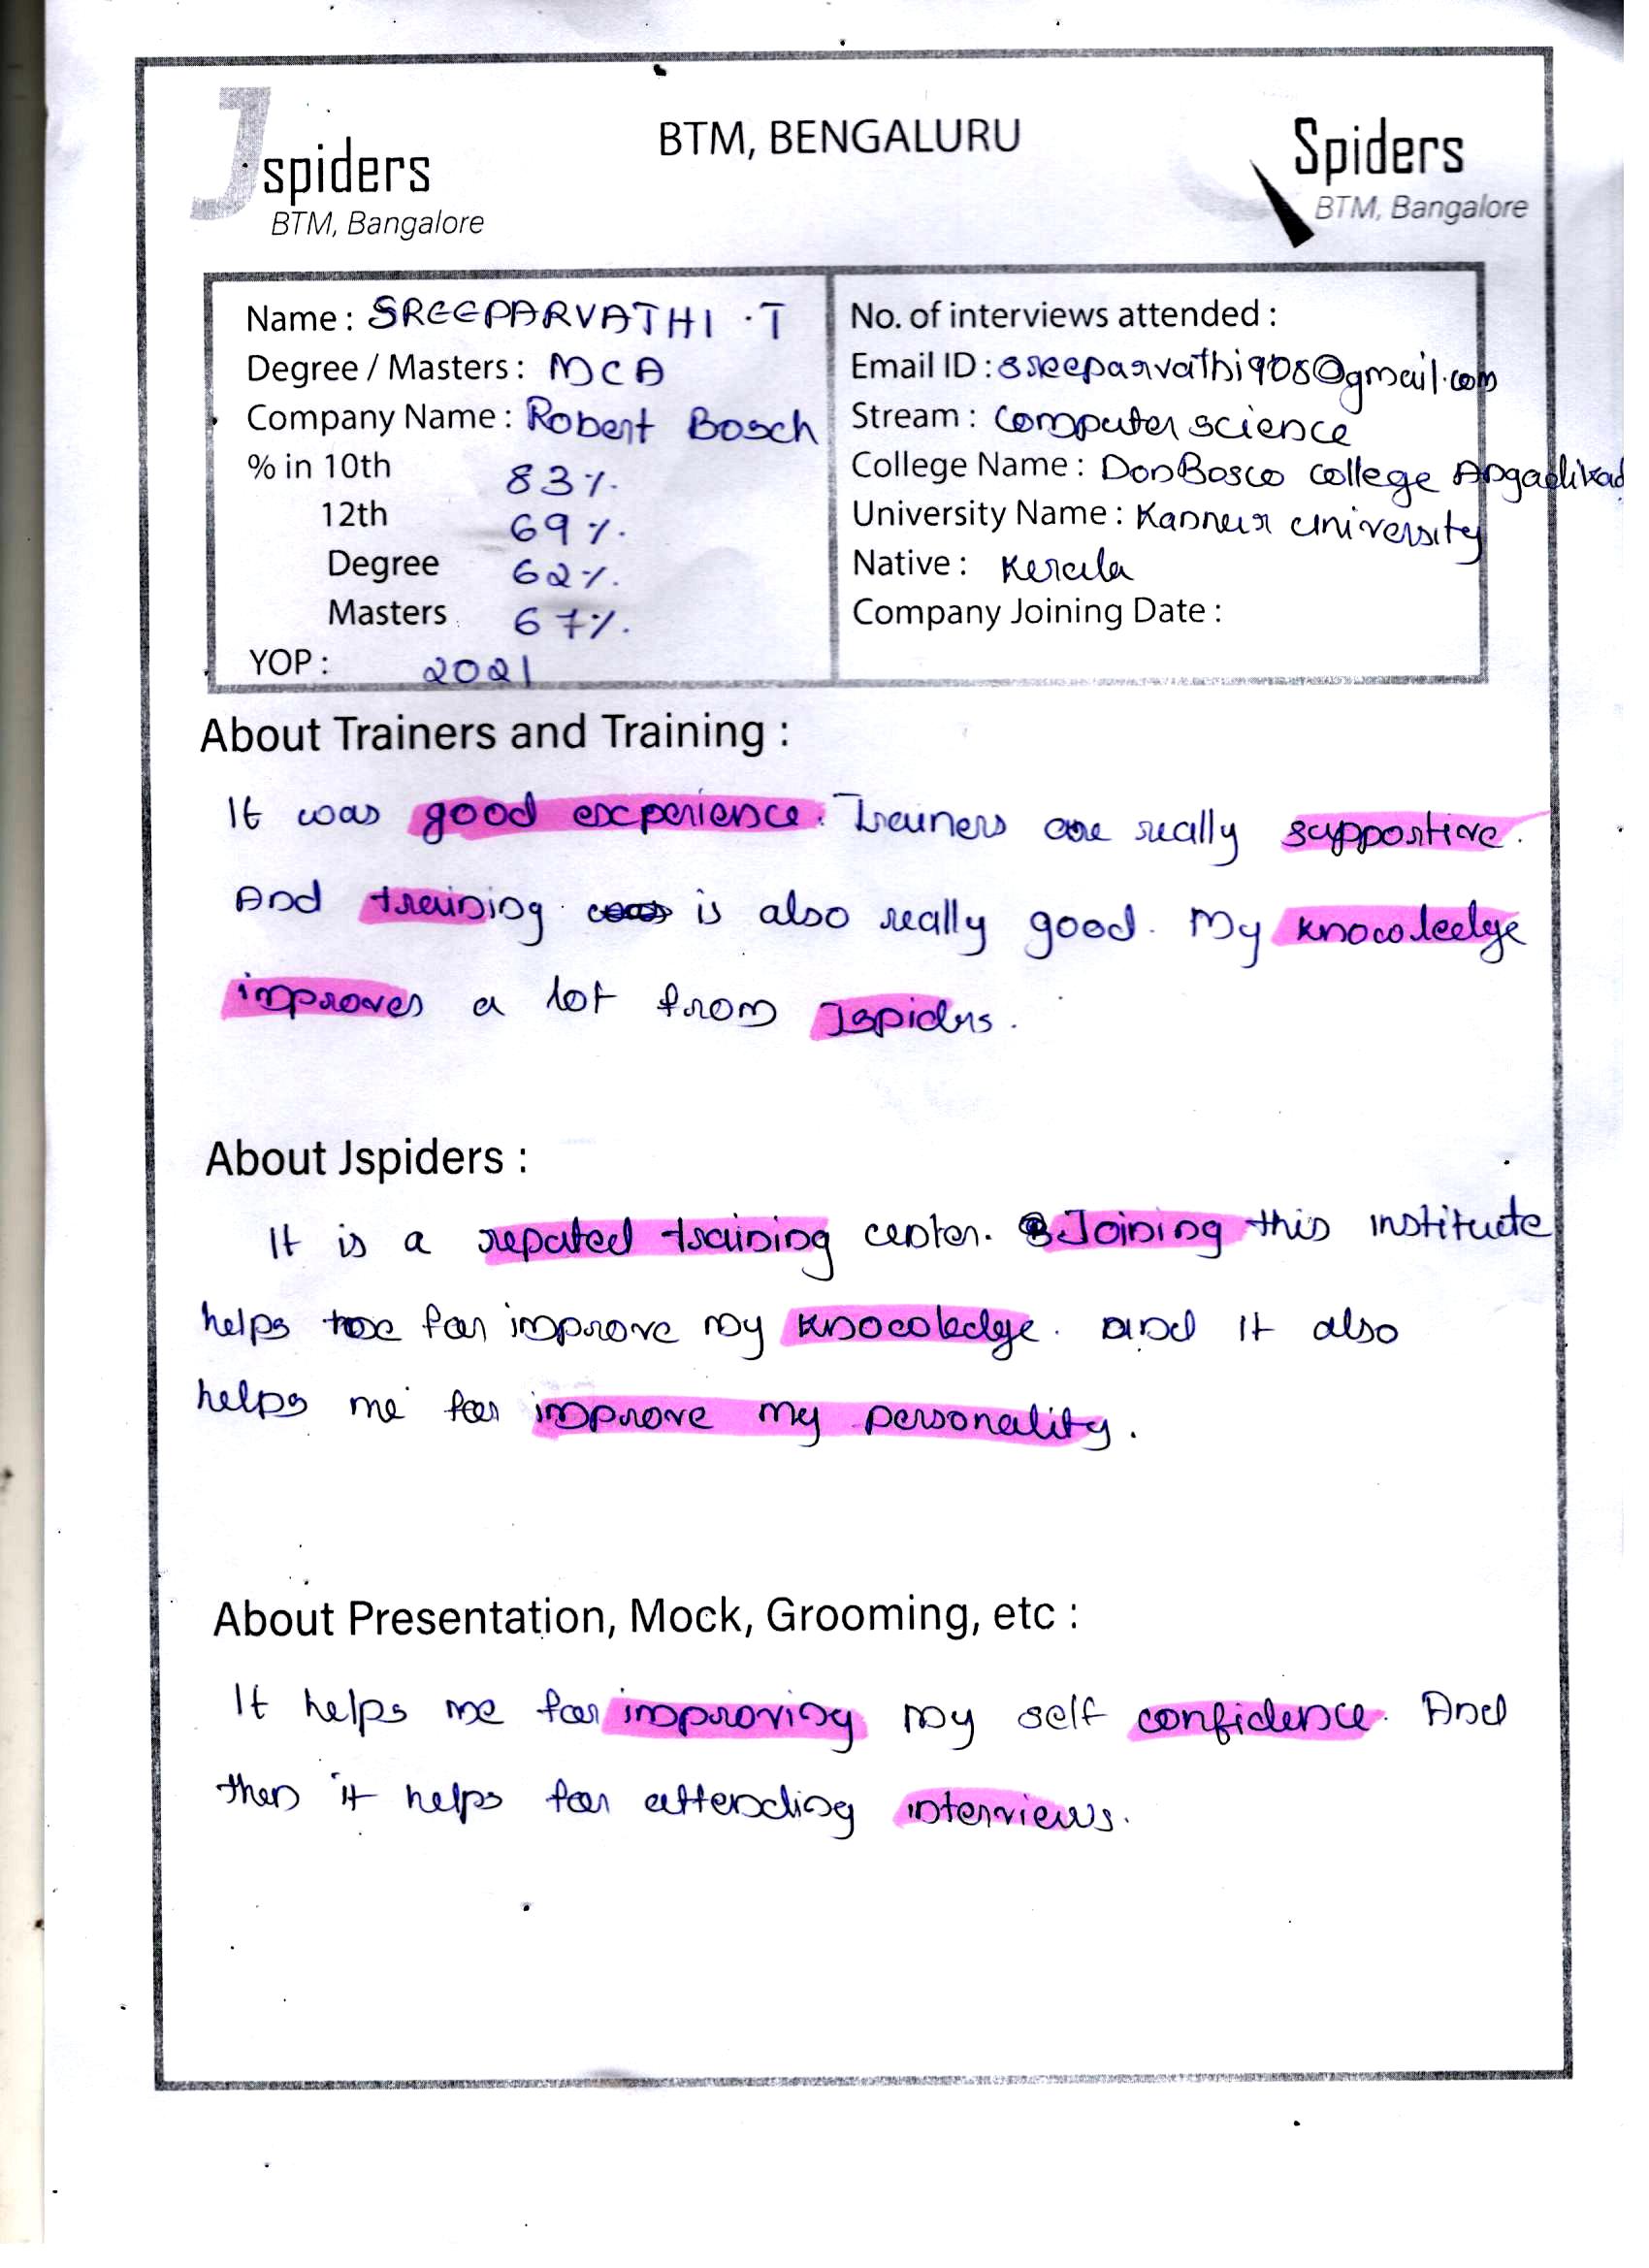 Jspiders
BTM, Bangalore
BTM, BENGALURU
Spiders
BTM, Bangalore
Name : SREEPARVATHI .T
Degree / Masters : MCA
Company Name : Robert Bosch
% in 10th 83%.
12th 69%.
Degree 62%.
Masters 67%.
YOP : 2021
No. of interviews attended :
Email ID : sreeparvathi908@gmail.com
Stream : Computer science
College Name : Don Bosco College Angadikad
University Name : Kannur University
Native : Kerala
Company Joining Date :
About Trainers and Training :
It was good experience. Trainers are really supportive.
And training is also really good. My knowledge
improves a lot from Jspiders.
About Jspiders :
It is a reputed training center. Joining this institute
helps me for improve my knowledge. and it also
helps me for improve my personality.
About Presentation, Mock, Grooming, etc :
It helps me for improving my self confidence. And
then it helps for attending interviews.